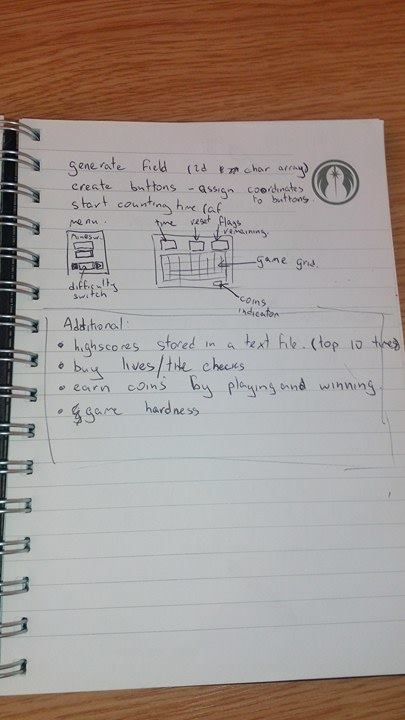 generate field (2d char array)
create buttons - assign coordinates
to buttons.
start counting time (af
menu.
time reset flags
remaining.
Minesw.
game grid.
difficulty
switch
coins
indicator
Additional:
• highscores stored in a text file. (top 10 times
• buy lives/tile checks
• earn coins by playing and winning.
• game hardness